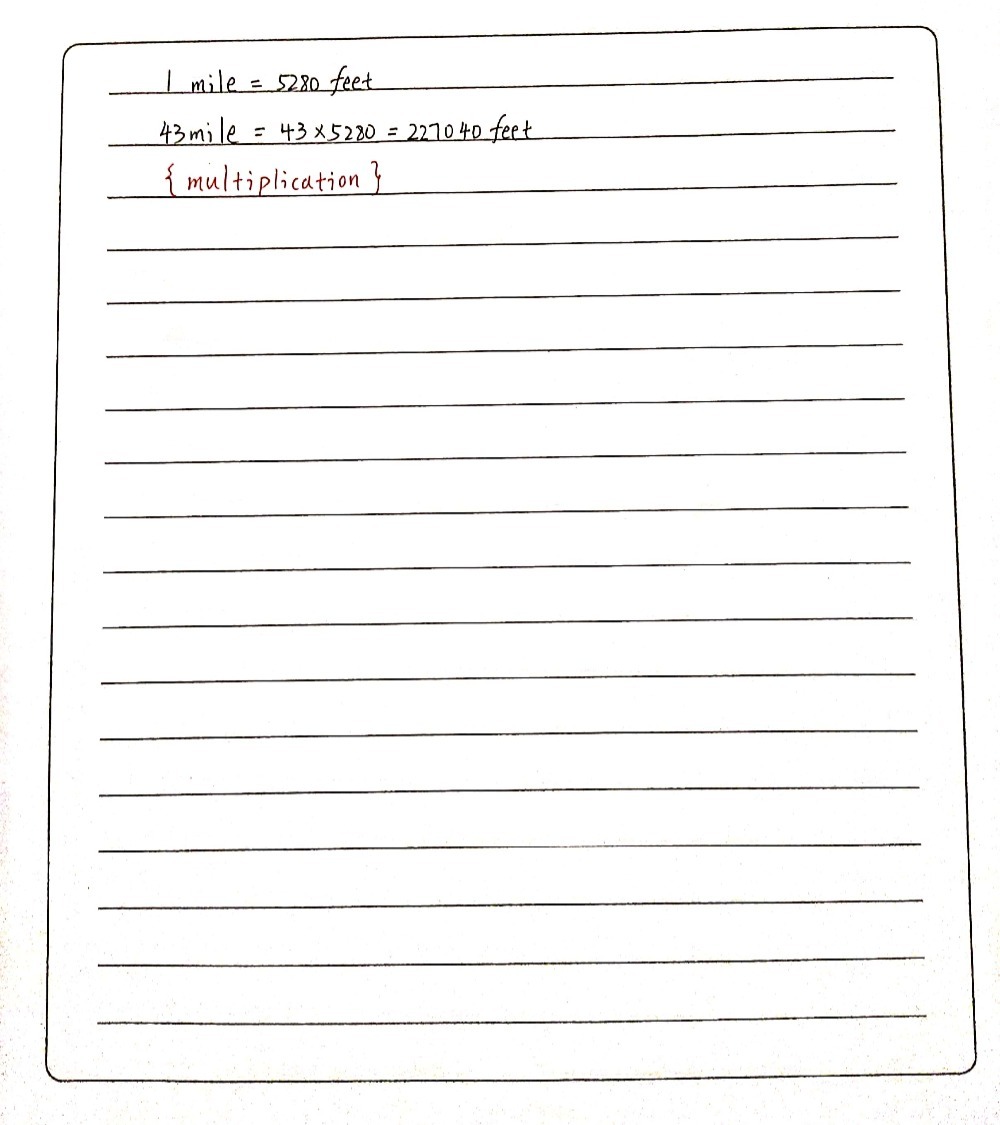 1 mile = 5280 feet
43mile = 43×5280 = 227040 feet
{multiplication}